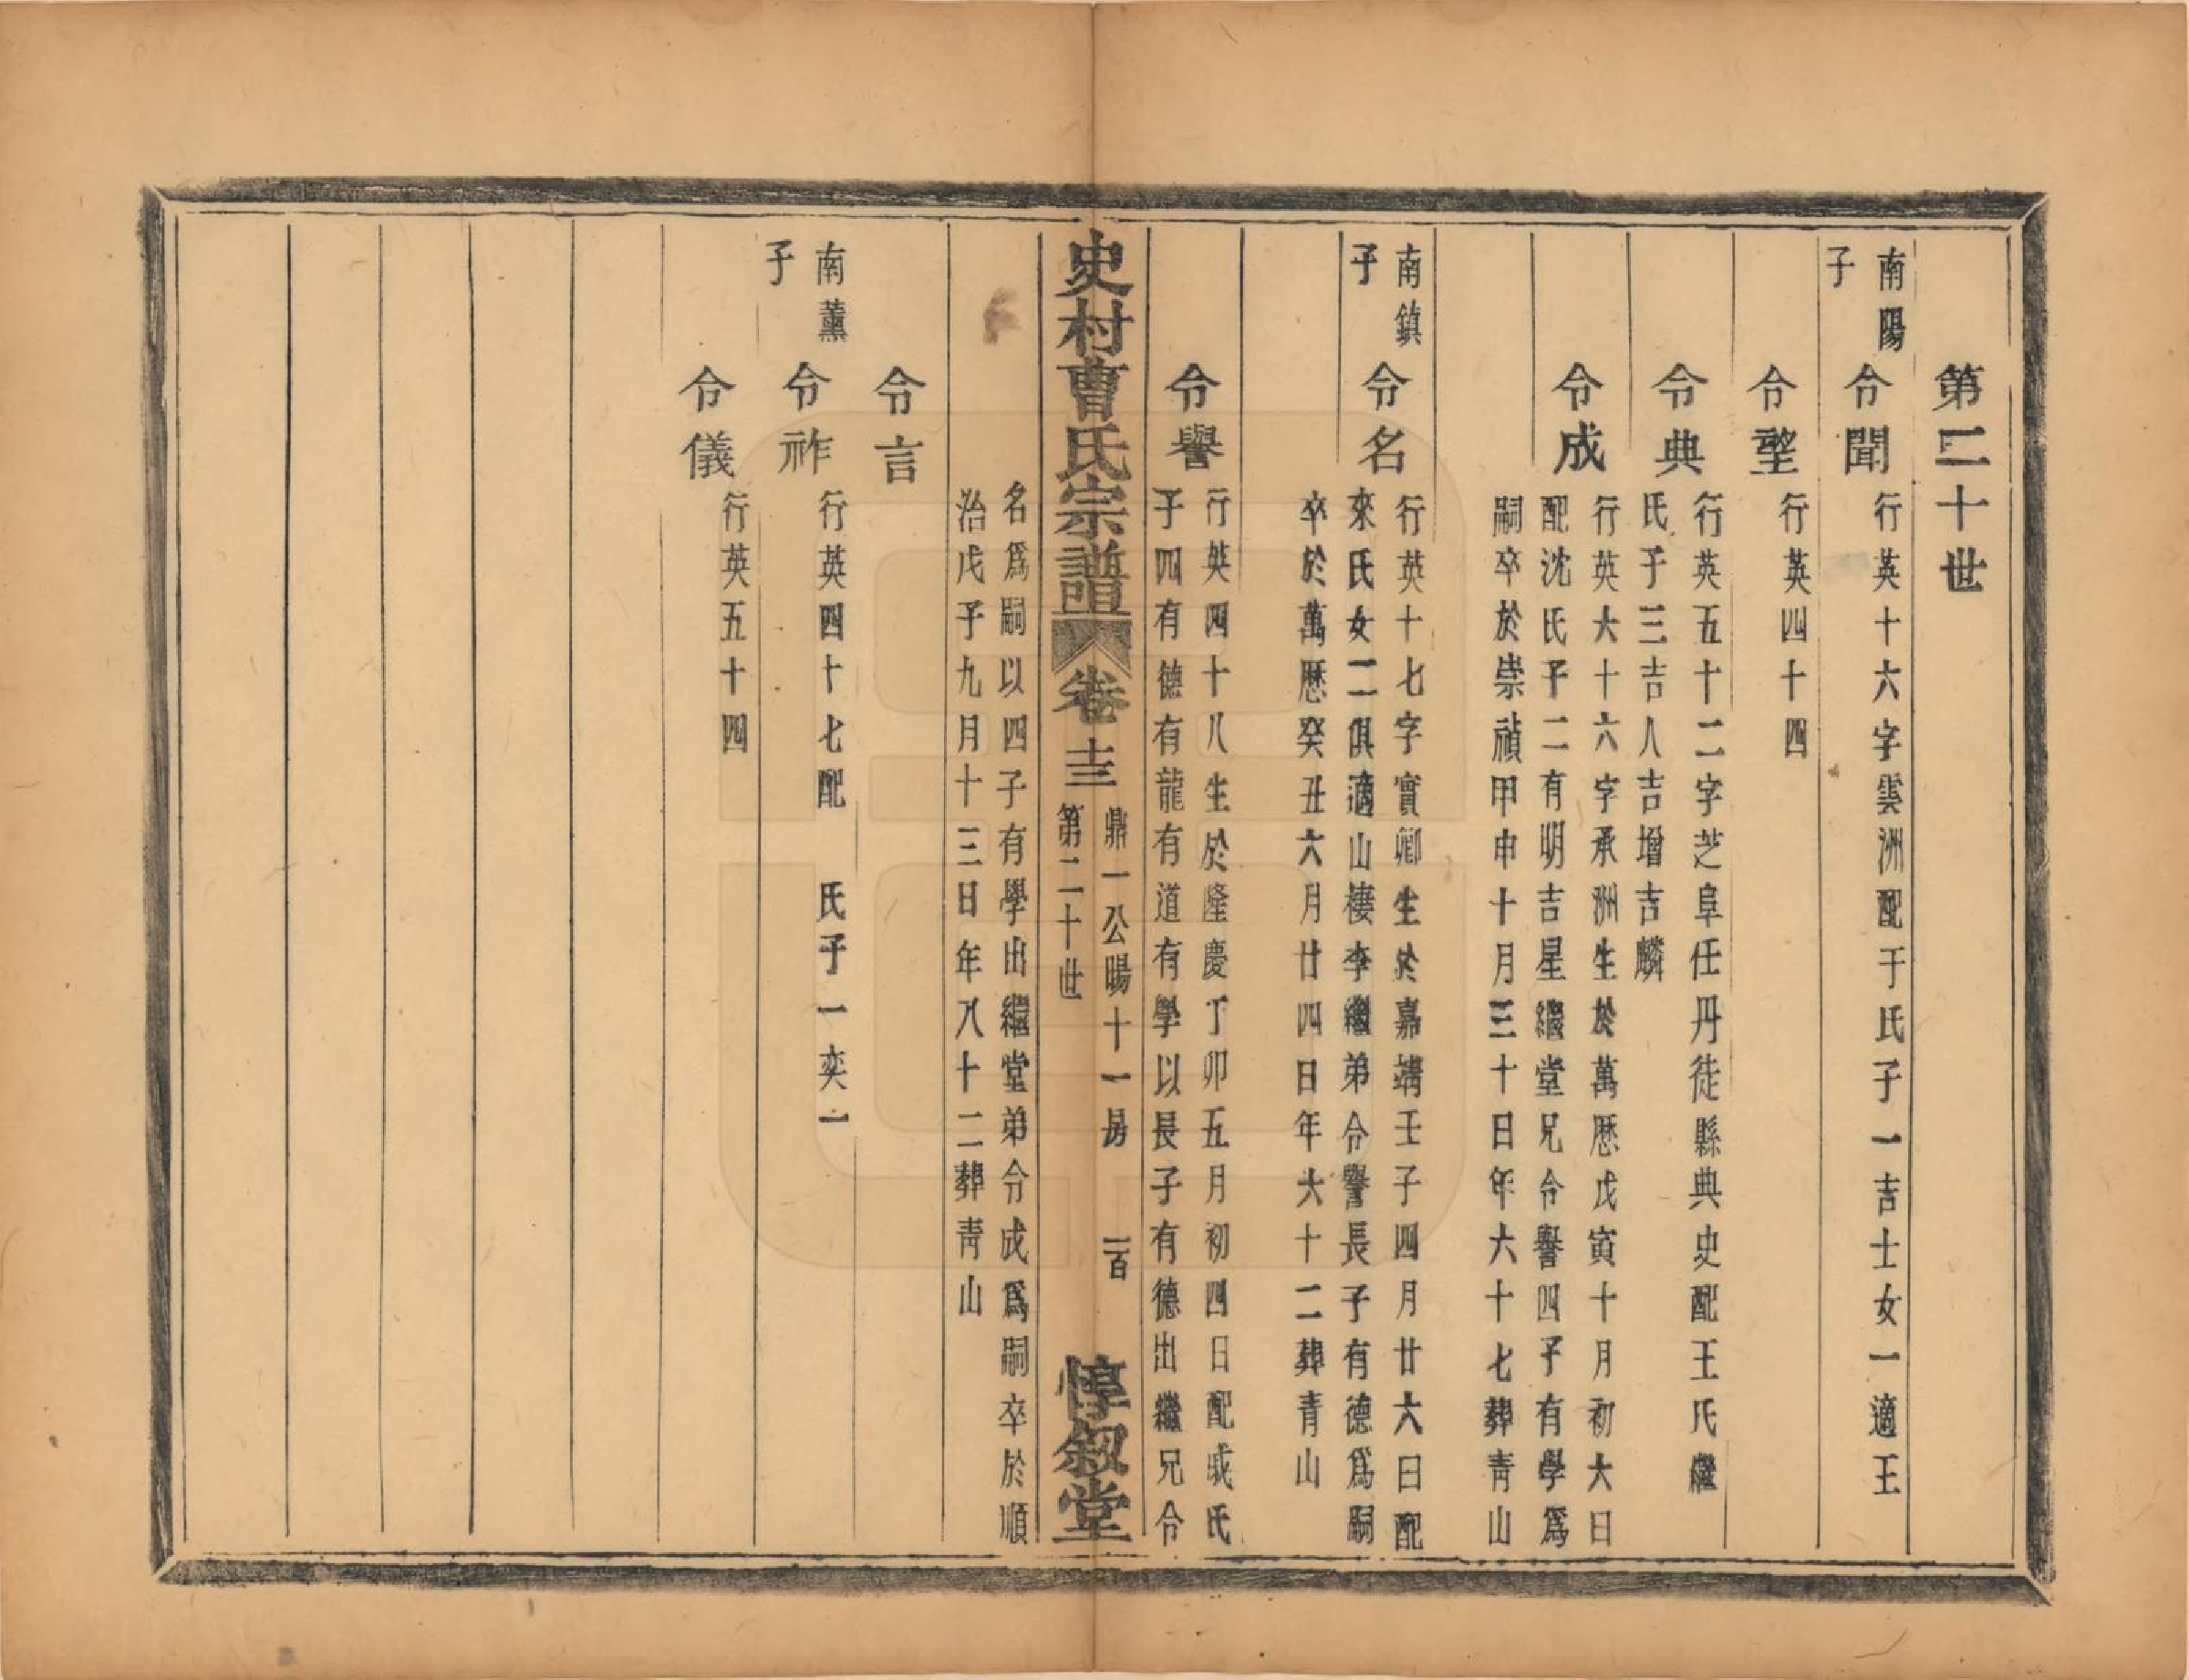 第二十世
南陽
子
令聞
行英十六字雲洲配于氏子一吉士女一適王
令望
行英四十四
令典
行英五十二字芝阜任丹徒縣典史配王氏繼
氏子三吉人吉增吉麟
令成
行英六十六字承洲生於萬歷戊寅十月初六日
配沈氏子二有明吉星繼堂兄令譽四子有學爲
嗣卒於崇禎甲申十月三十日年六十七葬靑山
南鎮
子
令名
行英十七字實卿生於嘉靖壬子四月廿六日配
來氏女二俱適山棲李繼弟令譽長子有德爲嗣
卒於萬歷癸丑六月廿四日年六十二葬青山
令譽
行英四十八生於隆慶丁卯五月初四日配戚氏
子四有德有龍有道有學以長子有德出繼兄令
史村曹氏宗譜
卷十三
鼎一公暘十一房
第二十世
一百
惇叙堂
名爲嗣以四子有學出繼堂弟令成爲嗣卒於順
治戊子九月十三日年八十二葬靑山
令言
南薰
子
令祚
行英四十七配 氏子一奕一
令儀
行英五十四